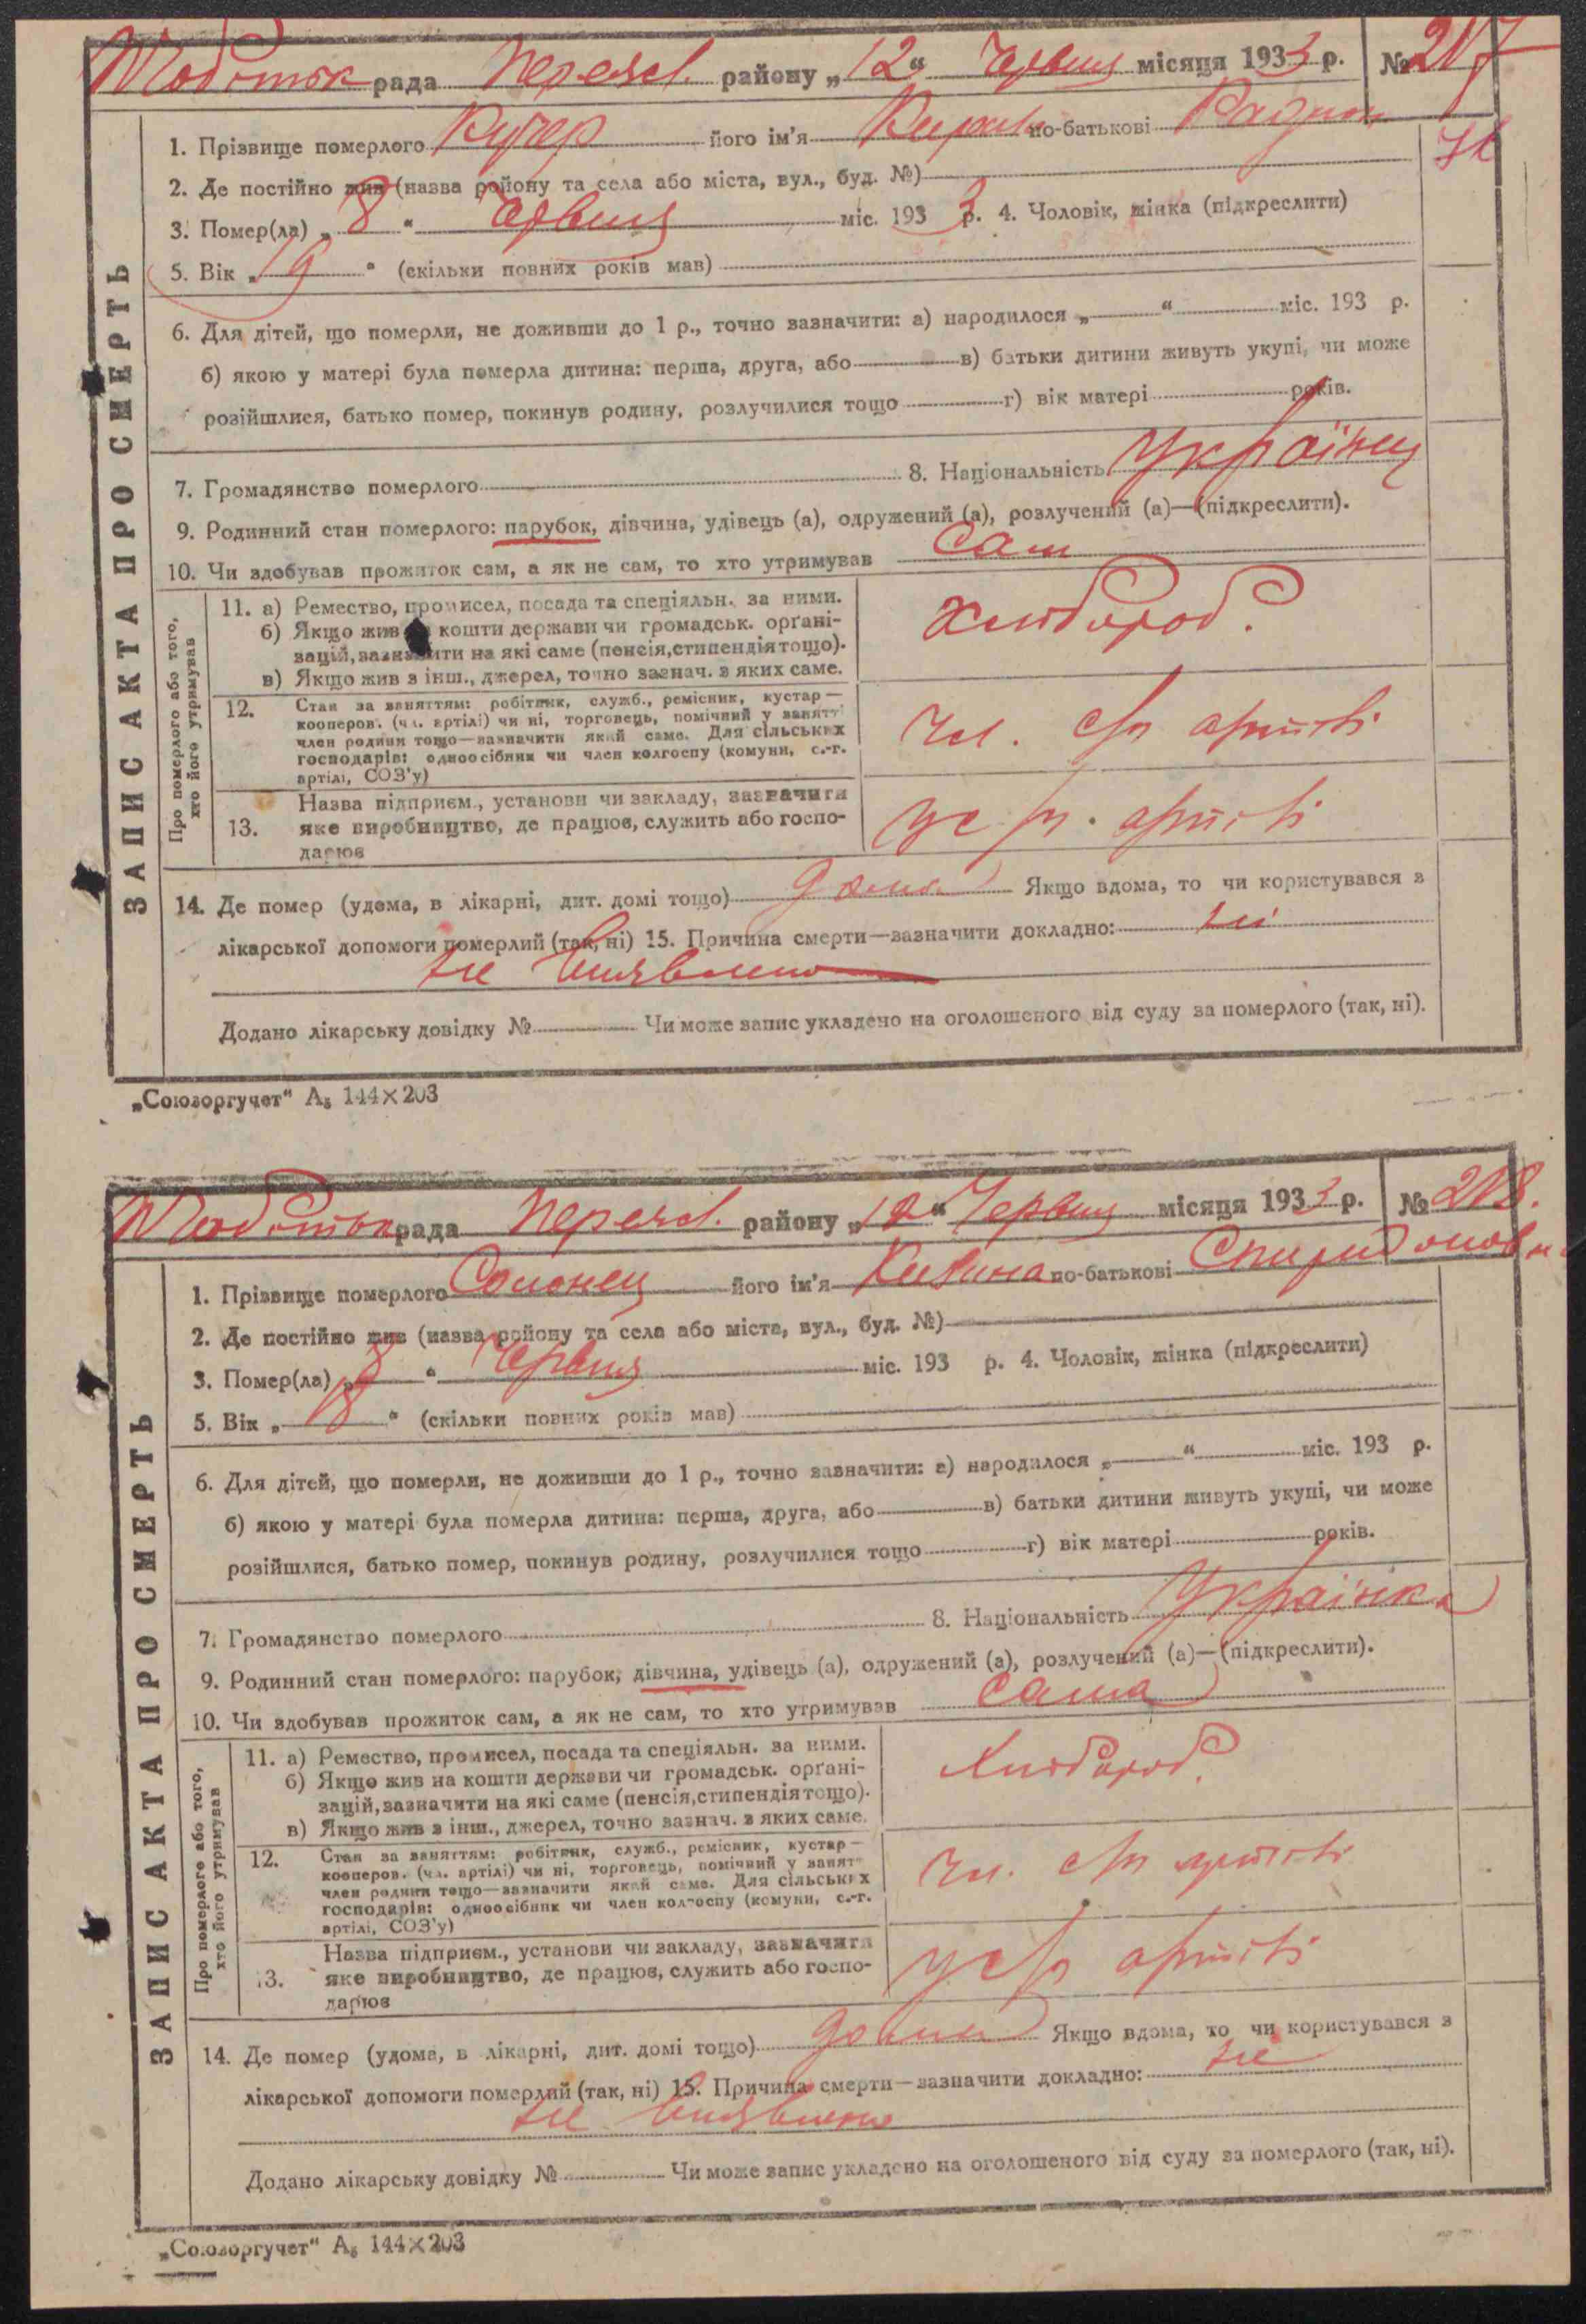 рада Переясл. району „12“ Червня місяця 1933 р. № 217
1. Прізвище померлого Кучер його ім'я по-батькові
2. Де постійно жив (назва району та села або міста, вул., буд. №)
3. Помер(ла) „8“ Червня міс. 1933 р. 4. Чоловік, жінка (підкреслити)
5. Вік „19“ (скільки повних років мав)
6. Для дітей, що померли, не доживши до 1 р., точно зазначити: а) народилося „ “ міс. 193 р.
б) якою у матері була померла дитина: перша, друга, або в) батьки дитини живуть укупі, чи може
розійшлися, батько помер, покинув родину, розлучилися тощо г) вік матері років.
7. Громадянство померлого 8. Національність Українец
9. Родинний стан померлого: парубок, дівчина, удівець (а), одружений (а), розлучений (а)—(підкреслити).
10. Чи здобував прожиток сам, а як не сам, то хто утримував Сам
ЗАПИС АКТА ПРО СМЕРТЬ
Про померлого або того, хто його утримував
11. а) Ремество, промисел, посада та спеціяльн. за ними.
б) Якщо жив на кошти держави чи громадськ. орґані-
зацій, зазначити на які саме (пенсія, стипендія тощо).
в) Якщо жив з інш., джерел, точно зазнач. з яких саме.
Хлібороб.
12. Стан за заняттям: робітник, служб., ремісник, кустар—
кооперов. (чл. артілі) чи ні, торговець, помічний у занятт
член родини тощо—зазначити який саме. Для сільських
господарів: одноосібник чи член колгоспу (комуни, с.-г.
артілі, СОЗ'у)
Чл. с/г артілі
13. Назва підприєм., установи чи закладу, зазначити
яке виробництво, де працює, служить або госпо-
дарює
У с/г. артілі
14. Де помер (удома, в лікарні, дит. домі тощо) дома Якщо вдома, то чи користувався з
лікарської допомоги померлий (так, ні) 15. Причина смерти—зазначити докладно: ні
не виявлено
Додано лікарську довідку № Чи може запис укладено на оголошеного від суду за померлого (так, ні).
„Союзоргучет“ А₅ 144×203
рада Переясл. району „12“ Червня місяця 1933 р. № 218.
1. Прізвище померлого Солонец його ім'я по-батькові Спиридоновн
2. Де постійно жив (назва району та села або міста, вул., буд. №)
3. Помер(ла) „8“ Червня міс. 193 р. 4. Чоловік, жінка (підкреслити)
5. Вік „18“ (скільки повних років мав)
6. Для дітей, що померли, не доживши до 1 р., точно зазначити: а) народилося „ “ міс. 193 р.
б) якою у матері була померла дитина: перша, друга, або в) батьки дитини живуть укупі, чи може
розійшлися, батько помер, покинув родину, розлучилися тощо г) вік матері років.
7. Громадянство померлого 8. Національність Українка
9. Родинний стан померлого: парубок, дівчина, удівець (а), одружений (а), розлучений (а)—(підкреслити).
10. Чи здобував прожиток сам, а як не сам, то хто утримував Сама
ЗАПИС АКТА ПРО СМЕРТЬ
Про померлого або того, хто його утримував
11. а) Ремество, промисел, посада та спеціяльн. за ними.
б) Якщо жив на кошти держави чи громадськ. орґані-
зацій, зазначити на які саме (пенсія, стипендія тощо).
в) Якщо жив з інш., джерел, точно зазнач. з яких саме.
Хлібороб.
12. Стан за заняттям: робітник, служб., ремісник, кустар—
кооперов. (чл. артілі) чи ні, торговець, помічний у занят
член родини тощо—зазначити який саме. Для сільських
господарів: одноосібник чи член колгоспу (комуни, с.-г.
артілі, СОЗ'у)
Чл. с/г артілі
13. Назва підприєм., установи чи закладу, зазначити
яке виробництво, де працює, служить або госпо-
дарює
У с/г артілі
14. Де помер (удома, в лікарні, дит. домі тощо) дома Якщо вдома, то чи користувався з
лікарської допомоги померлий (так, ні) 15. Причина смерти—зазначити докладно: не
не виявлено
Додано лікарську довідку № Чи може запис укладено на оголошеного від суду за померлого (так, ні).
„Союзоргучет“ А₅ 144×203